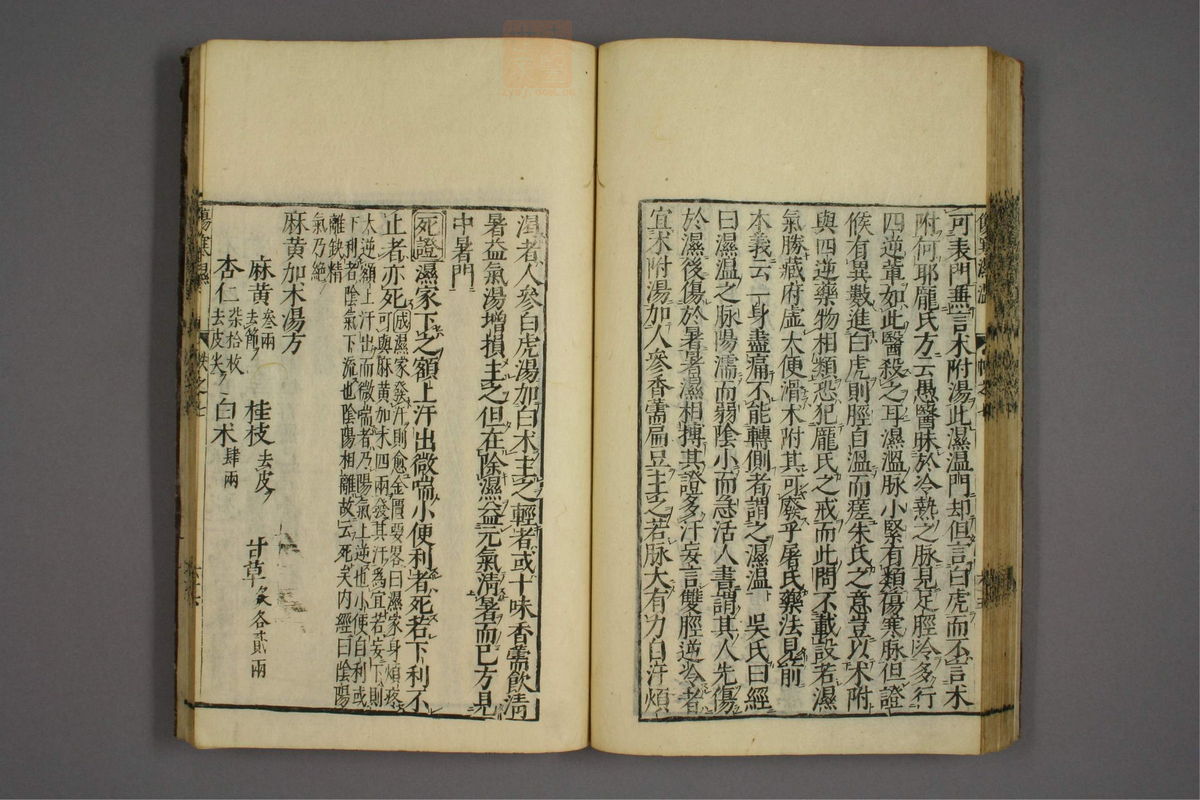 可表門無言朮附湯此濕温門却但言白虎而不言朮
附何耶龐氏方云愚醫昧於冷熱之脉見足脛冷多行
四逆軰如此醫殺之耳濕溫脉小緊有類傷寒脉但證
候有異數進白虎則脛自温而瘥朱氏之意豈以朮附
與四逆藥物相類恐犯龐氏之戒而此問不載設若濕
氣勝藏府虚大便滑朮附其可廢乎屠氏藥法見前
本義云一身盡痛不能轉側者謂之濕温 吳氏曰經
曰濕温之脉陽濡而弱陰小而急活人書謂其人先傷
於濕後傷於暑暑濕相搏其證多汗妄言雙脛逆冷者
宜朮附湯加人參香薷扁豆主之若脉大有力自汗煩
渴者人參白虎湯加白朮主之輕者或十味香薷飲清
暑益氣湯增損主之但在除濕益元氣清暑而已方見
中暑門
死證濕家下之額上汗出微喘小便利者死若下利不
止者亦死成濕家發汗則愈金匱要畧曰濕家身煩疼
可與麻黄加朮四兩發其汗爲宜若妄下則
太逆額上汗出而微喘者乃陽氣上逆也小便自利或
下利者陰氣下流也陰陽相離故云死矣内經曰陰陽
離鈌精
氣乃絶
麻黄加朮湯方
麻黄叁兩去節 桂枝去皮 甘草炙各貳兩
杏仁柒拾枚去皮尖 白朮肆兩